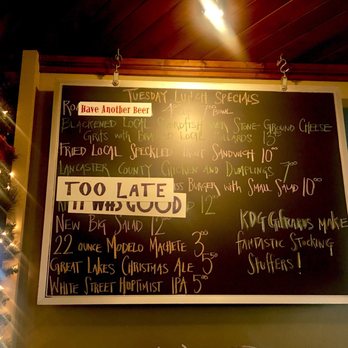 Tuesday Lunch Specials
Have Another Beer
Bowl
Blackened Local Stone-Ground Cheese
Grits with Local 13
Fried Local Speckled Trout Sandwich 10
Lancaster County Chicken and Dumplings 7
TOO LATE Burger with Small Salad 10
IT WAS GOOD 12
New Big Salad 12
22 ounce Modelo Machete 3
Great Lakes Christmas Ale 5
White Street Hoptimist IPA 5
KDG Giftcards make
fantastic Stocking
Stuffers!